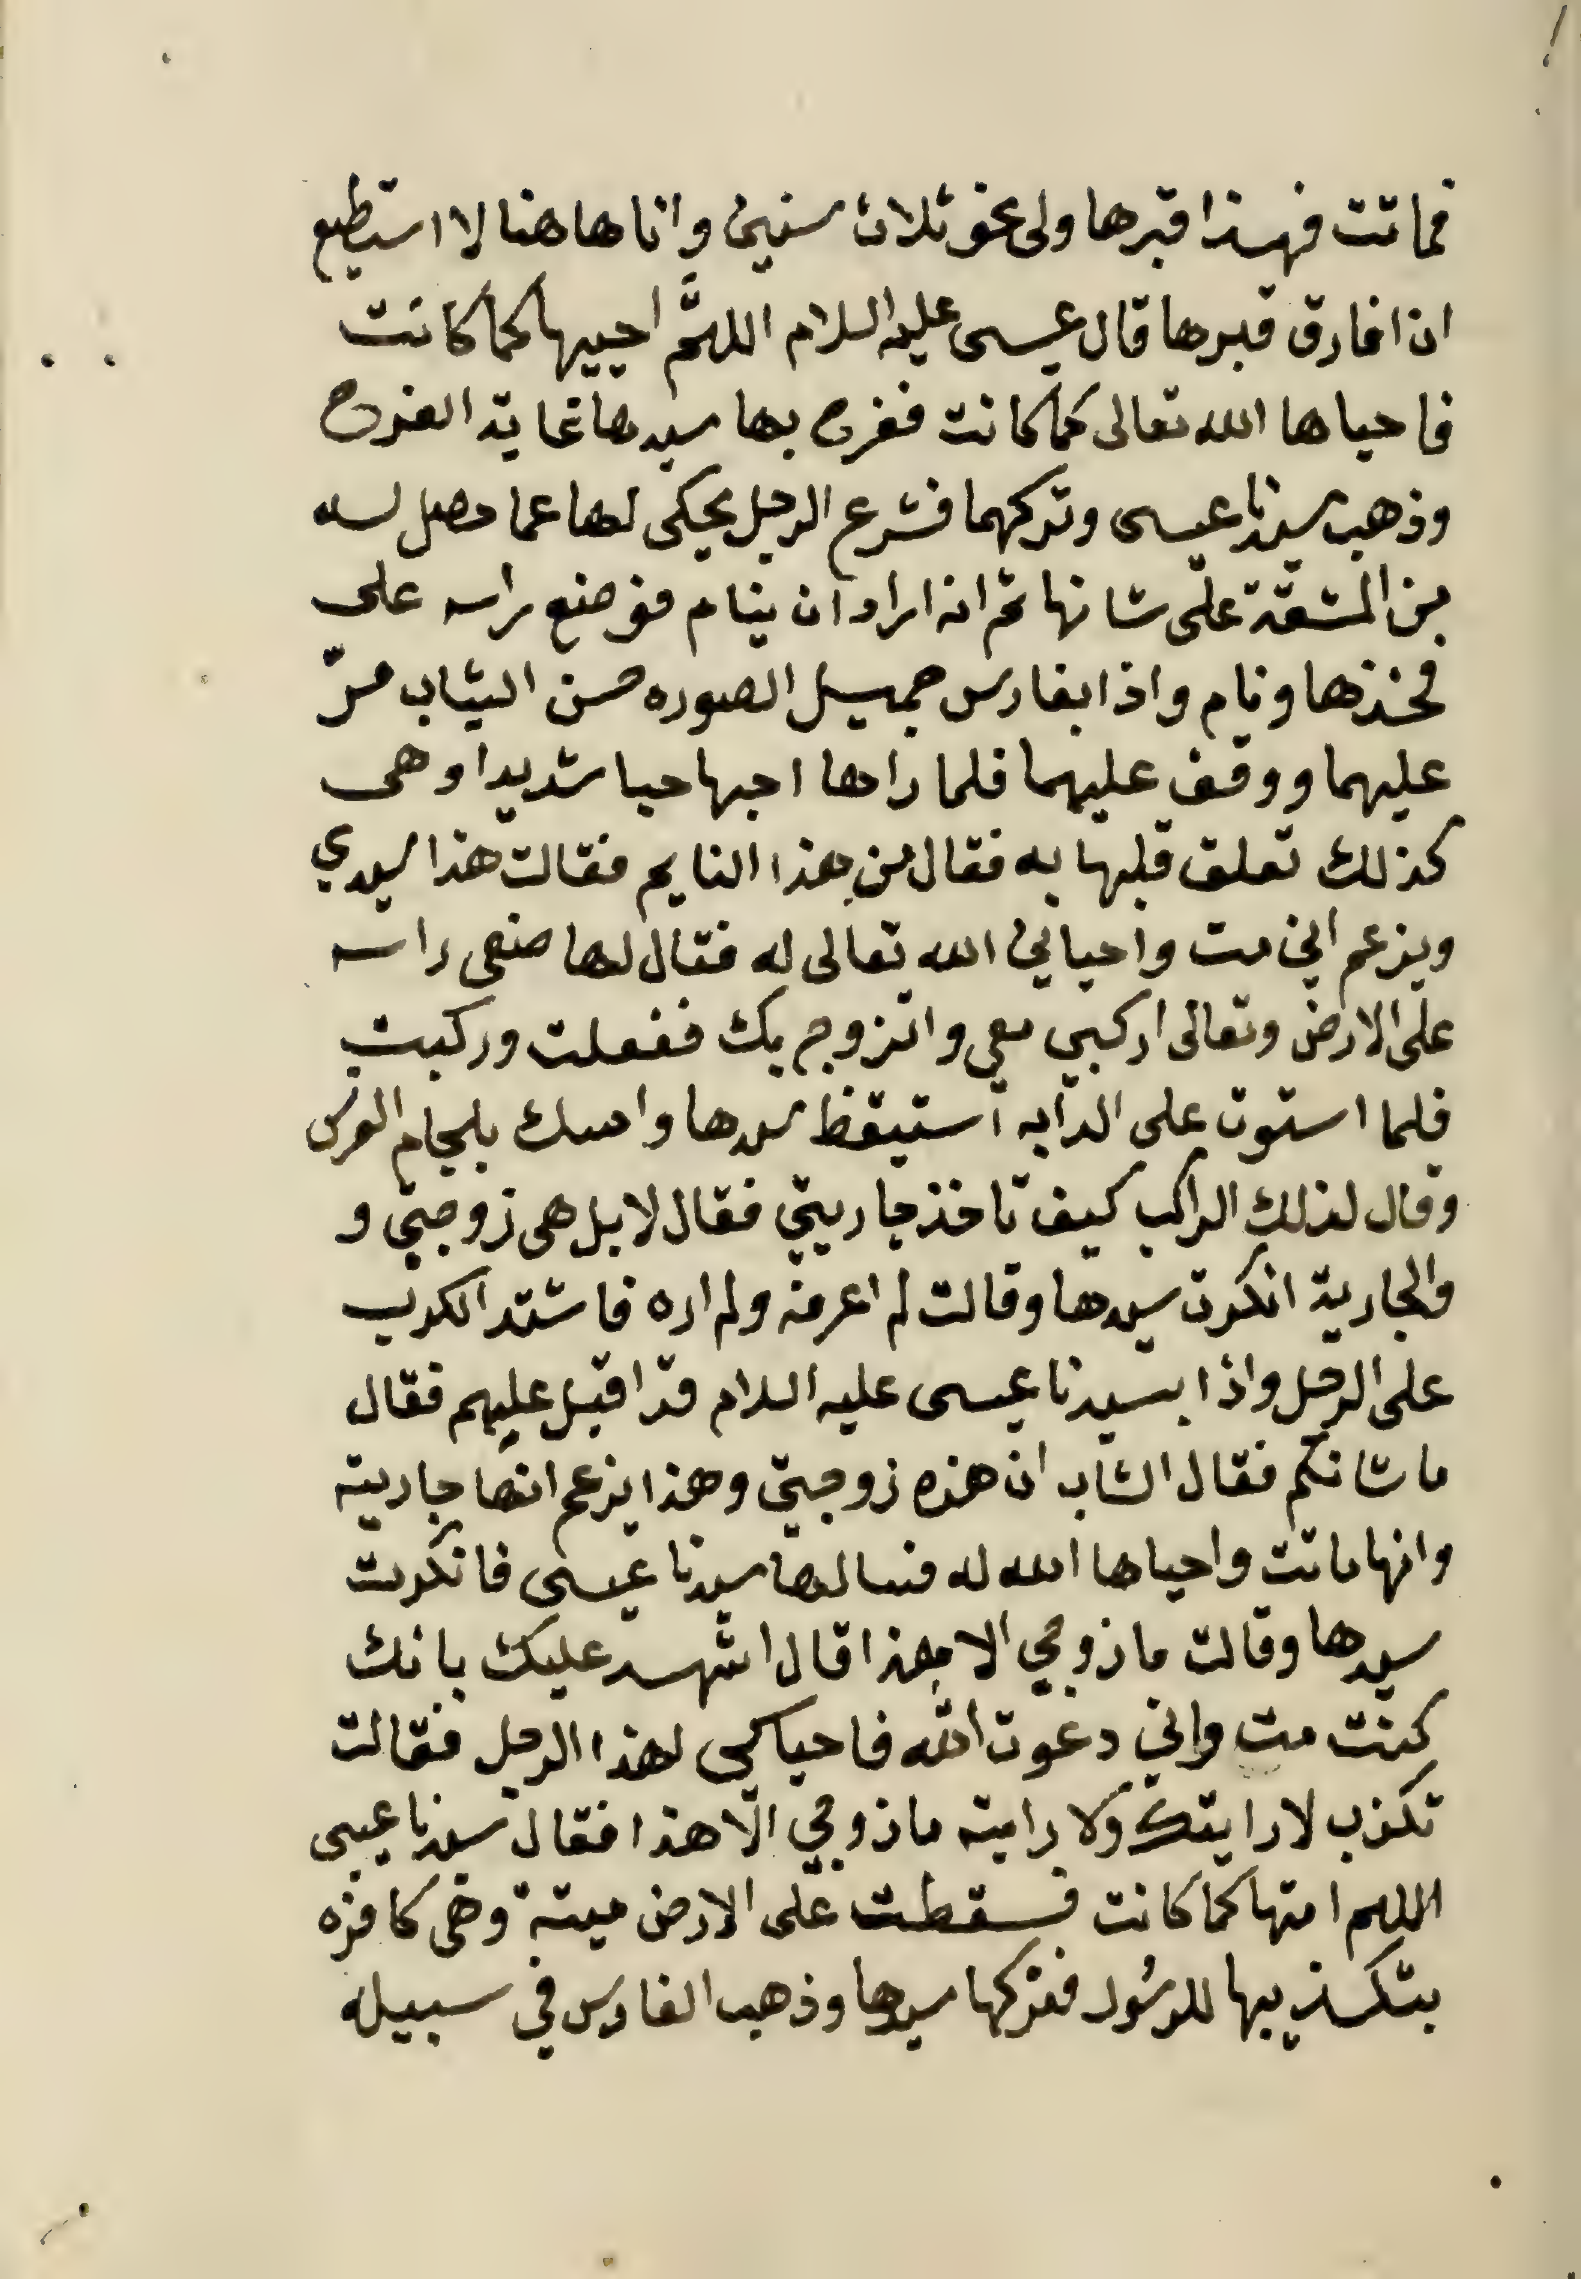 فماتت فهذا قبرها ولى نحو ثلاث سنين وانا هاهنا لا استطيع
ان افارق قبرها قال عيسى عليه السلام اللهمَّ احييها كما كانت
فاحياها الله تعالى كما كانت ففرح بها سيدها غاية الفرح
وذهب سيدنا عيسى وتركهما فشرع الرجل يحكى لها عما حصل له
من المشقة على شانها ثم انه اراد ان ينام فوضع راسه على
فخذها ونام واذا بفارس جميل الصوره حسن الثياب مرّ
عليهما ووقف عليهما فلما راها احبها حبا شديدا وهى
كذلك تعلق قلبها به فقال من هذا النايم فقالت هذا سيدي
ويزعم انى مت واحيانى الله تعالى له فقال لها ضعى راسه
على الارض وتعالى اركبي معي واتزوج بك ففعلت وركبت
فلما استوت على الدابه استيقظ سيدها وامسك بلجام الفرس
وقال لذلك الراكب كيف تاخذ جاريتي فقال لا بل هى زوجتي و
والجارية انكرت سيدها وقالت لم اعرفه ولم اره فاشتد الكرب
على الرجل واذا بسيدنا عيسى عليه السلام قد اقبل عليهم فقال
ما شانكم فقال الشاب ان هذه زوجتي وهذا يزعم انها جاريته
وانها ماتت واحياها الله له فسالها سيدنا عيسى فانكرت
سيدها وقالت ما زوجي الا هذا قال اشهد عليك بانك
كنت مت واني دعوت الله فاحياكى لهذا الرجل فقالت
تكذب لا رايتك ولا رايته ما زوجي الا هذا فقال سيدنا عيسى
اللهم امتها كما كانت فسقطت على الارض ميتة وهى كافره
بتكذيبها للرسُول فتركها سيدها وذهب الفارس في سبيله